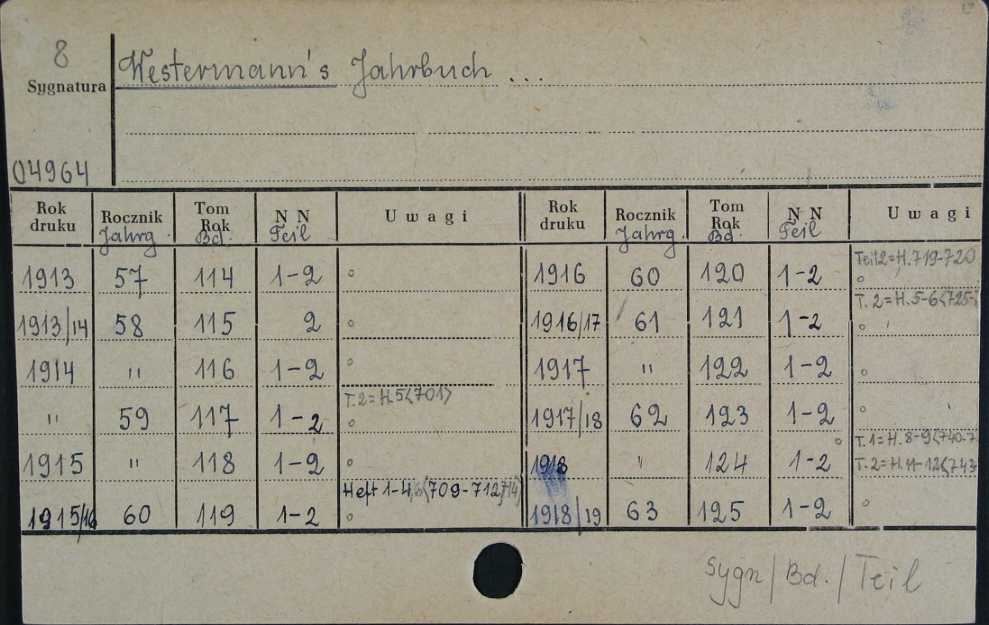 8
Westermann's Jahrbuch ...
Sygnatura
04964
Rok druku Rocznik Jahrg. Tom Rok Bd. N N Teil Uwagi Rok druku Rocznik Jahrg. Tom Rok Bd. N N Teil Uwagi
Teil 2=H.719-720
1913 57 114 1-2 1916 60 120 1-2
T. 2=H.5-6<725-
1913/14 58 115 2 1916/17 61 121 1-2
1914 " 116 1-2 1917 " 122 1-2
T. 2=H.5<701>
" 59 117 1-2 1917/18 62 123 1-2
T.1=H.8-9<740-7
1915 " 118 1-2 1918 " 124 1-2 T.2=H.11-12<743
Heft 1-4, <709-712,714>
1915/16 60 119 1-2 1918/19 63 125 1-2
Sygn/Bd./Teil